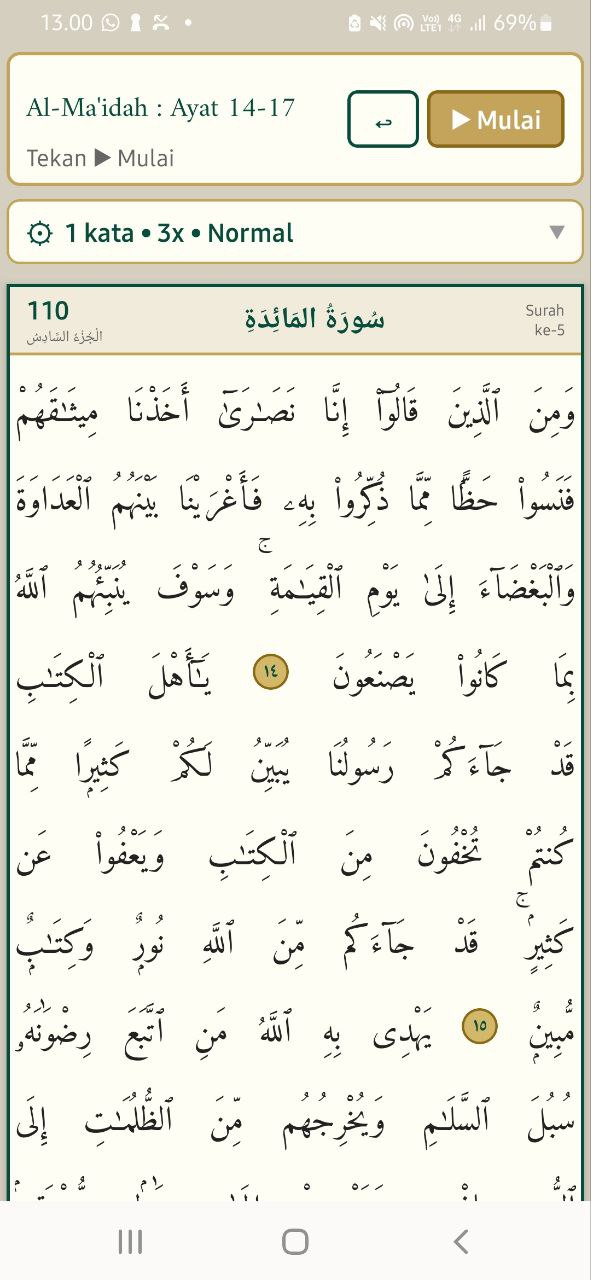 13.00 Vo)) LTE1 4G 69%
Al-Ma'idah : Ayat 14-17
Mulai
Tekan ▶ Mulai
1 kata • 3x • Normal
110
الْجُزْءُ السَّادِسُ
سُورَةُ المَائِدَةِ
Surah
ke-5
وَمِنَ ٱلَّذِينَ قَالُوٓا۟ إِنَّا نَصَـٰرَىٰٓ أَخَذْنَا مِيثَـٰقَهُمْ
فَنَسُوا۟ حَظًّا مِّمَّا ذُكِّرُوا۟ بِهِۦ فَأَغْرَيْنَا بَيْنَهُمُ ٱلْعَدَاوَةَ
وَٱلْبَغْضَآءَ إِلَىٰ يَوْمِ ٱلْقِيَـٰمَةِ ۚ وَسَوْفَ يُنَبِّئُهُمُ ٱللَّهُ
بِمَا كَانُوا۟ يَصْنَعُونَ ١٤ يَـٰٓأَهْلَ ٱلْكِتَـٰبِ
قَدْ جَآءَكُمْ رَسُولُنَا يُبَيِّنُ لَكُمْ كَثِيرًۭا مِّمَّا
كُنتُمْ تُخْفُونَ مِنَ ٱلْكِتَـٰبِ وَيَعْفُوا۟ عَن
كَثِيرٍۢ ۚ قَدْ جَآءَكُم مِّنَ ٱللَّهِ نُورٌۭ وَكِتَـٰبٌۭ
مُّبِينٌۭ ١٥ يَهْدِى بِهِ ٱللَّهُ مَنِ ٱتَّبَعَ رِضْوَٰنَهُۥ
سُبُلَ ٱلسَّلَـٰمِ وَيُخْرِجُهُم مِّنَ ٱلظُّلُمَـٰتِ إِلَى